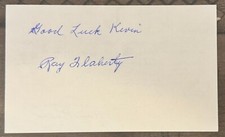 Good Luck Kevin
Ray Flaherty